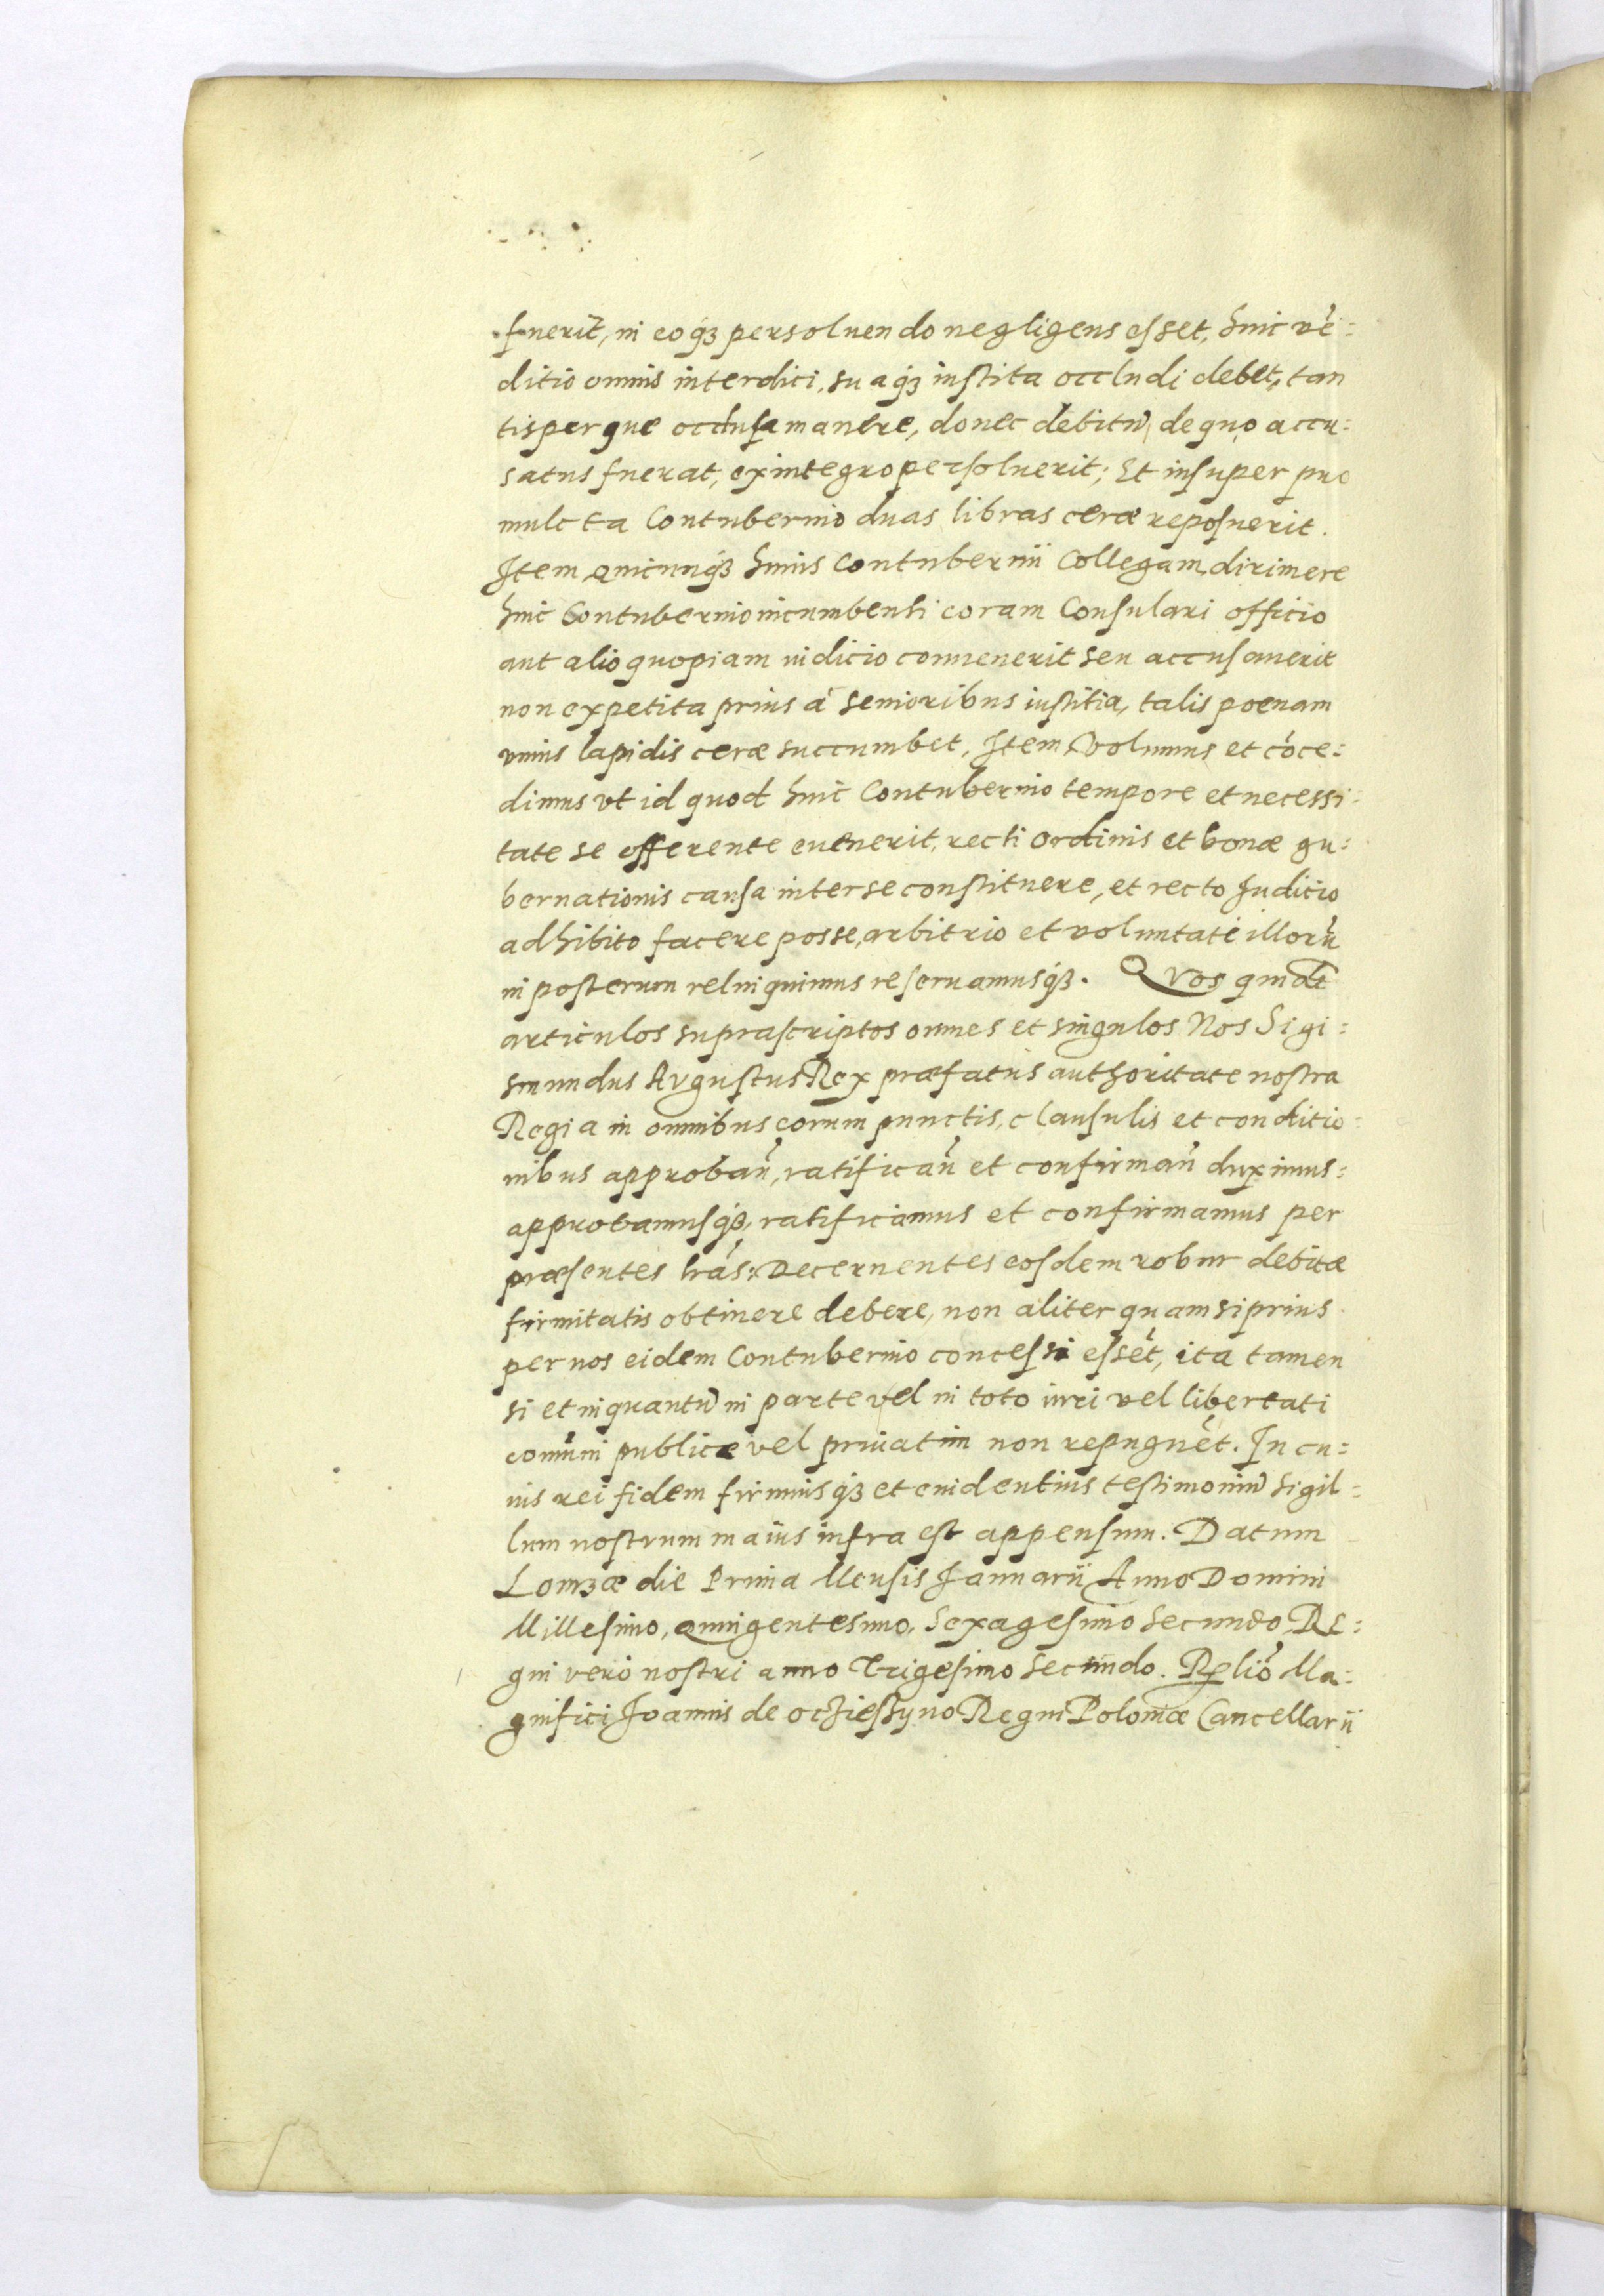 fuerit, in eoq́ꝫ persoluendo negligens esset, huic vē=
ditio omnis interdici, suaq́ꝫ instita occludi debet, tan
tisperque occlusa manere, donec debitũ, de quo accu=
satus fuerat, ex integro persoluerit; Et insuper pro
mulcta Contubernio duas libras ceræ reposuerit.
Item quicunq́ꝫ huius Contubernii Collegam, dirimere
huic Contubernio incumbenti coram Consulari officio
aut alio quopiam iudicio conuenerit seu accusauerit
non expetita prius à senioribus iustitia, talis poenam
vnius lapidis ceræ succumbet, Item Volumus et cōce=
dimus vt id quod huic Contubernio tempore et necessi=
tate se offerente euenerit, recti ordinis et bonæ gu=
bernationis causa inter se constituere, et recto Iudicio
adhibito facere posse, arbitrio et voluntate illorũ
in posterum relinquimus reseruamusq́ꝫ. Quos quidē
articulos suprascriptos omnes et singulos Nos Sigi=
smundus Avgustus Rex præfatus authoritate nostra
Regia in omnibus eorum punctis, clausulis et conditio=
nibus approbañ, ratificañ et confirmañ duximus=
approbamusq́ꝫ, ratificamus et confirmamus per
præsentes lrás: Decernentes eosdem robur debitæ
firmitatis obtinere debere, non aliter quam si prius
per nos eidem Contubernio concessi essēt, ita tamen
si et inquantũ in parte vel in toto iuri vel libertati
comũni publice vel priuatim non repugnēt. In cu=
ius rei fidem firmiusq́ꝫ et euidentius testimoniũ Sigil=
lum nostrum maius infra est appensum. Datum
Lomzæ die Prima Mensis Januarii Anno Domini
Millesimo, quingentesimo, Sexagesimo Secundo, Re=
gni vero nostri anno Trigesimo Secundo. Rꝑliō Ma=
gnifici Joannis de Oczieszyno Regni Poloniæ Cancellarii